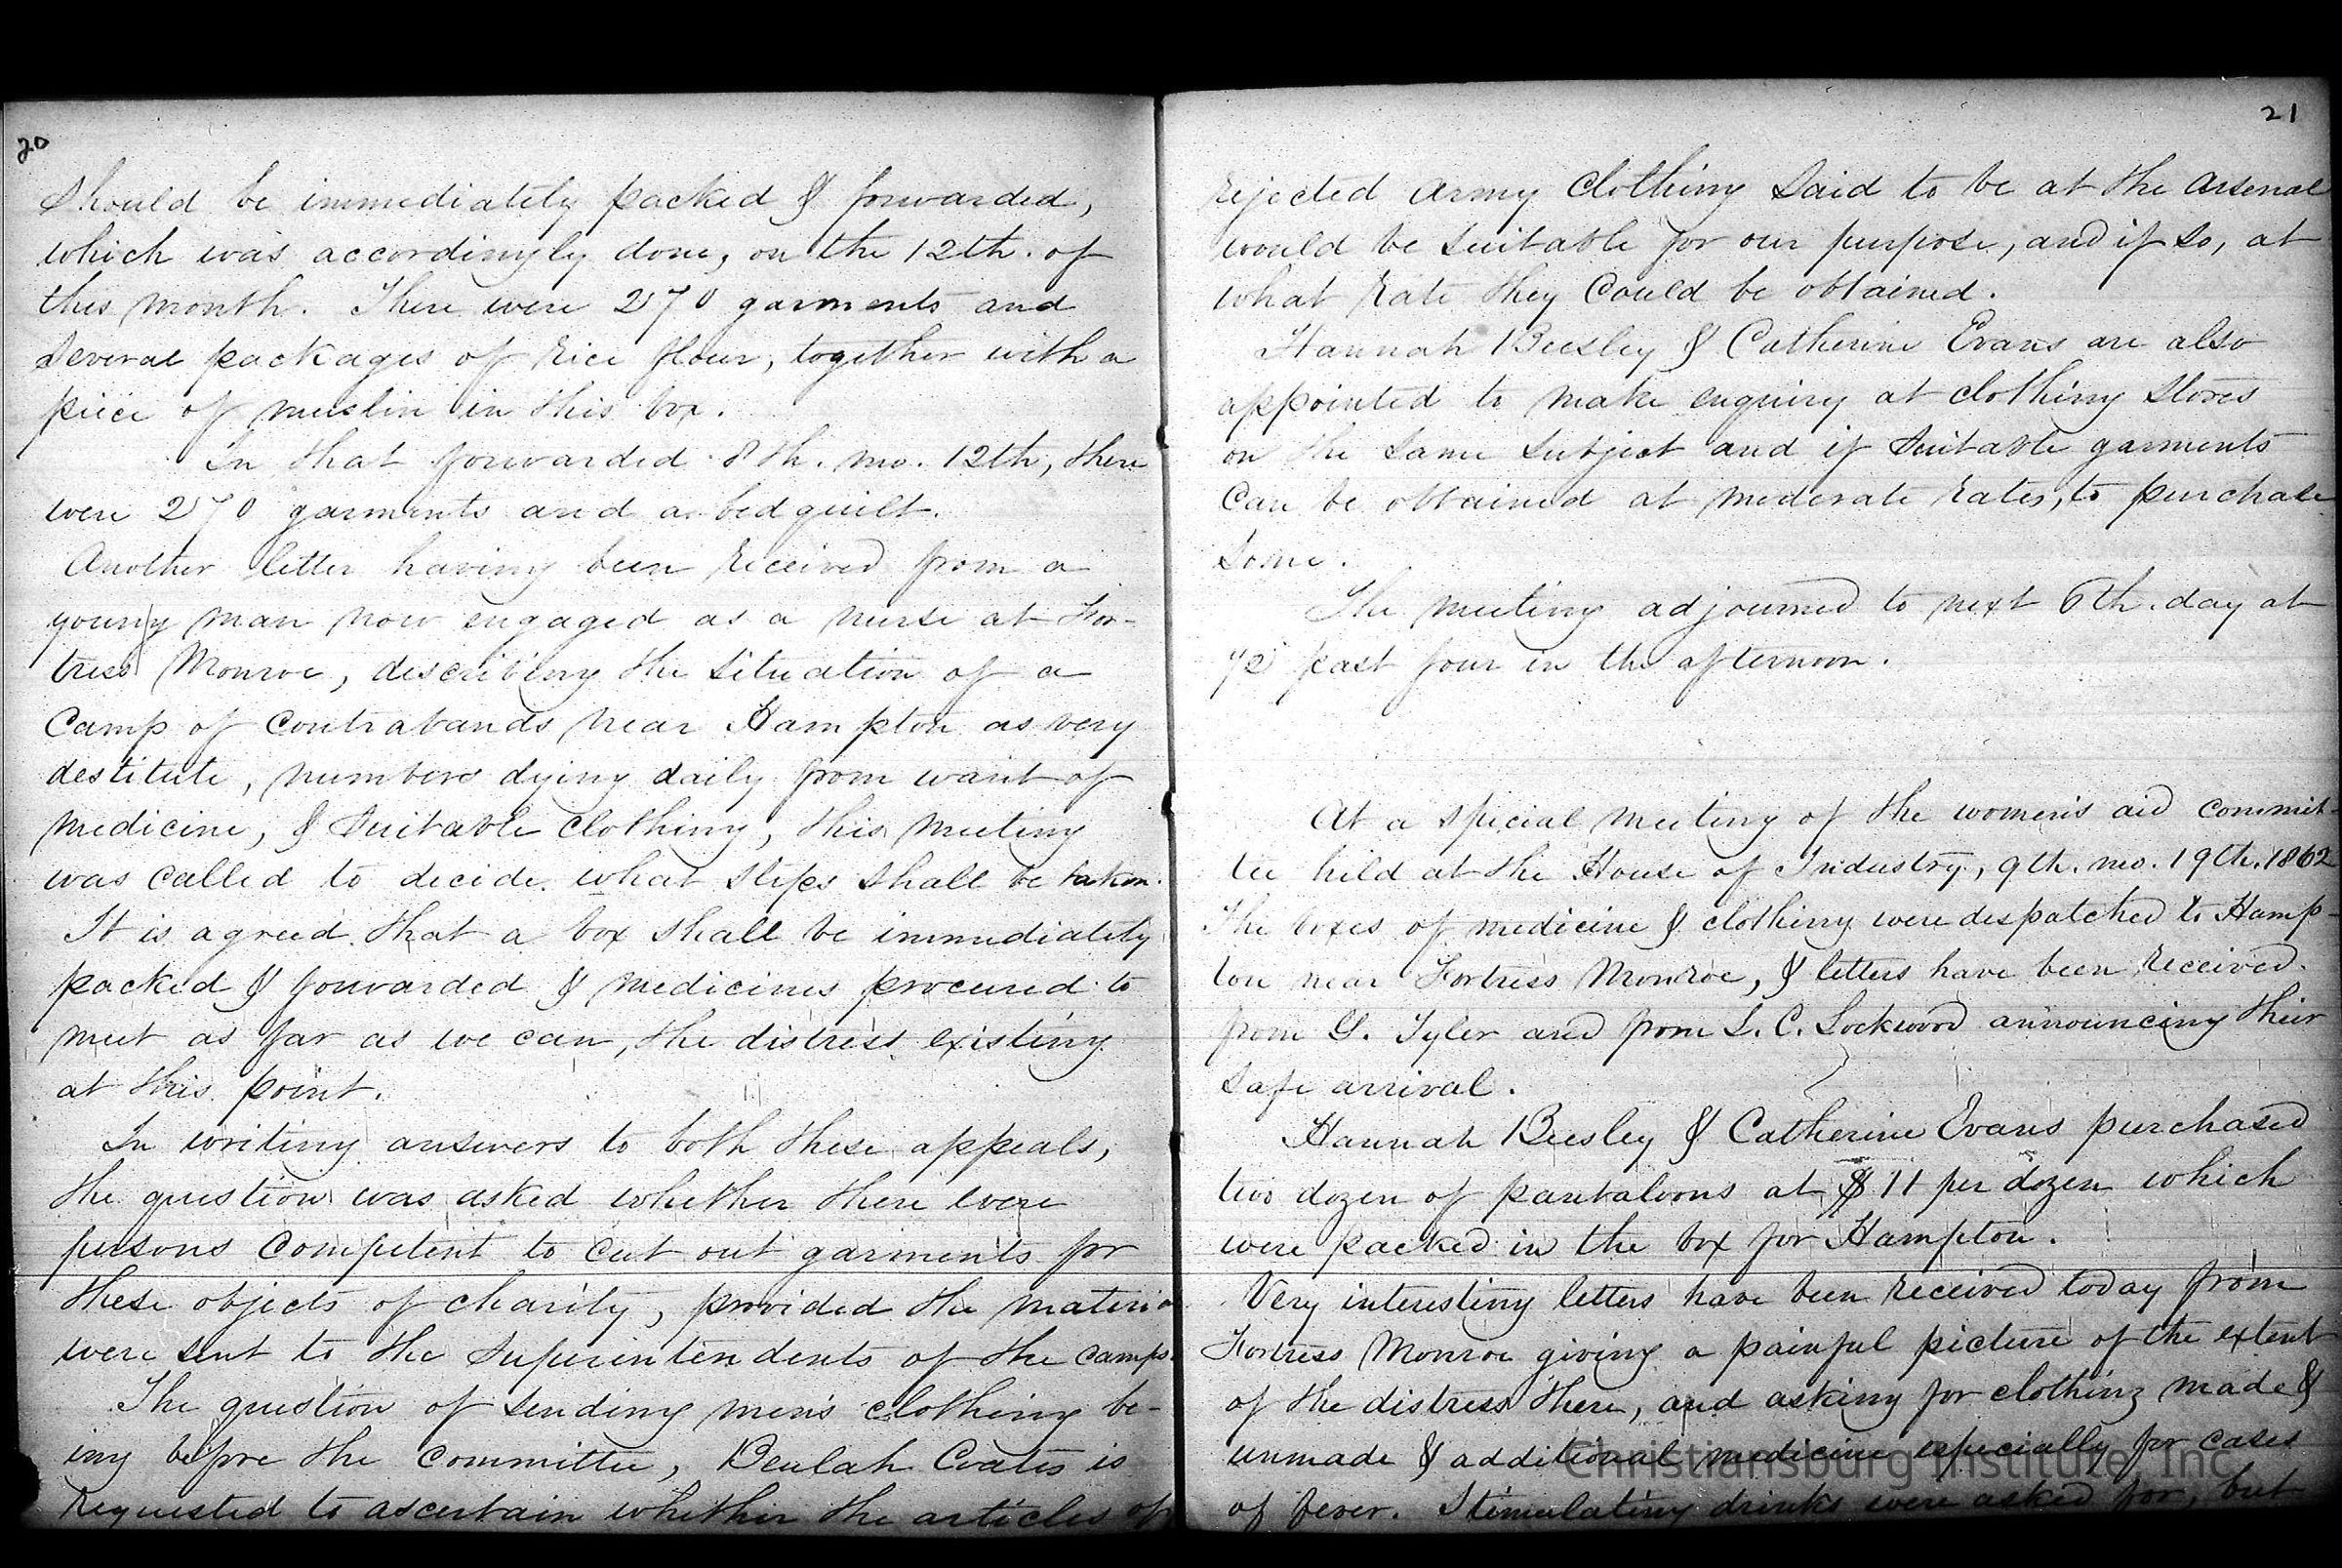 20
should be immediately packed & forwarded,
which was accordingly done, on the 12th. of
this month. There were 270 garments and
several packages of rice flour, together with a
piece of muslin in this box.
In that forwarded 8th. mo. 12th, there
were 270 garments and a bedquilt.
Another letter having been received from a
young man now engaged as a nurse at For-
tress Monroe, describing the situation of a
Camp of Contrabands near Hampton as very
destitute, numbers dying daily from want of
medicine, & suitable clothing, this meeting
was called to decide what steps shall be taken.
It is agreed that a box shall be immediately
packed & forwarded & medicines procured to
meet as far as we can, the distress existing
at this point.
In writing answers to both these appeals,
the question was asked whether there were
persons competent to cut out garments for
these objects of charity, provided the materia
were sent to the Superintendents of the camps.
The question of sending men's clothing be-
ing before the Committee, Beulah Coates is
requested to ascertain whether the articles of
21
rejected army clothing said to be at the arsenal
would be suitable for our purpose, and if so, at
what rate they could be obtained.
Hannah Beesley & Catherine Evans are also
appointed to make enquiry at clothing stores
on the same subject and if suitable garments
can be obtained at moderate rates, to purchase
some.
The meeting adjourned to next 6th. day at
1/2 past four in the afternoon.
At a special meeting of the women's aid commit-
tee held at the House of Industry, 9th. mo. 19th. 1862
The boxes of medicine & clothing were despatched to Hamp-
ton near Fortress Monroe, & letters have been received
from G. Tyler and from L. C. Lockwood announcing their
safe arrival.
Hannah Beesley & Catherine Evans purchased
two dozen of pantaloons at $11 per dozen which
were packed in the box for Hampton.
Very interesting letters have been received today from
Fortress Monroe giving a painful picture of the extent
of the distress there, and asking for clothing made &
unmade & additional medicine especially for cases
of fever. Stimulating drinks were asked for, but
Christiansburg Institute, Inc.